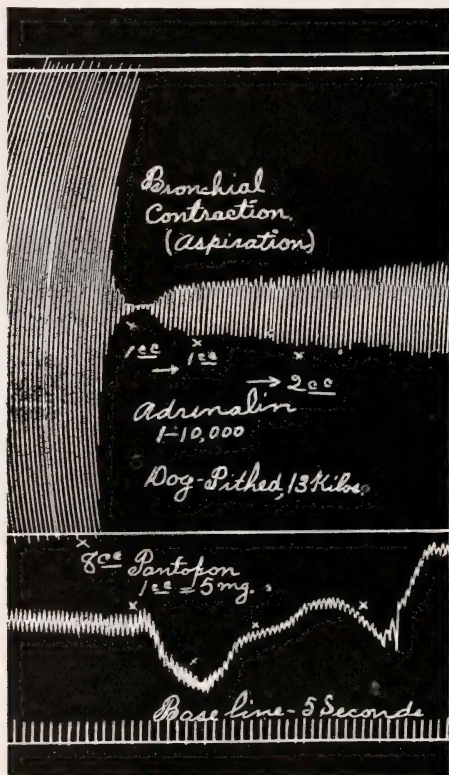 Bronchial
Contraction
(Aspiration)
1cc → 1cc
→ 2cc
Adrenalin
1-10,000
Dog-Pithed, 13 Kilos.
8cc Pantopon
1cc = 5mg.
Base line - 5 Seconds